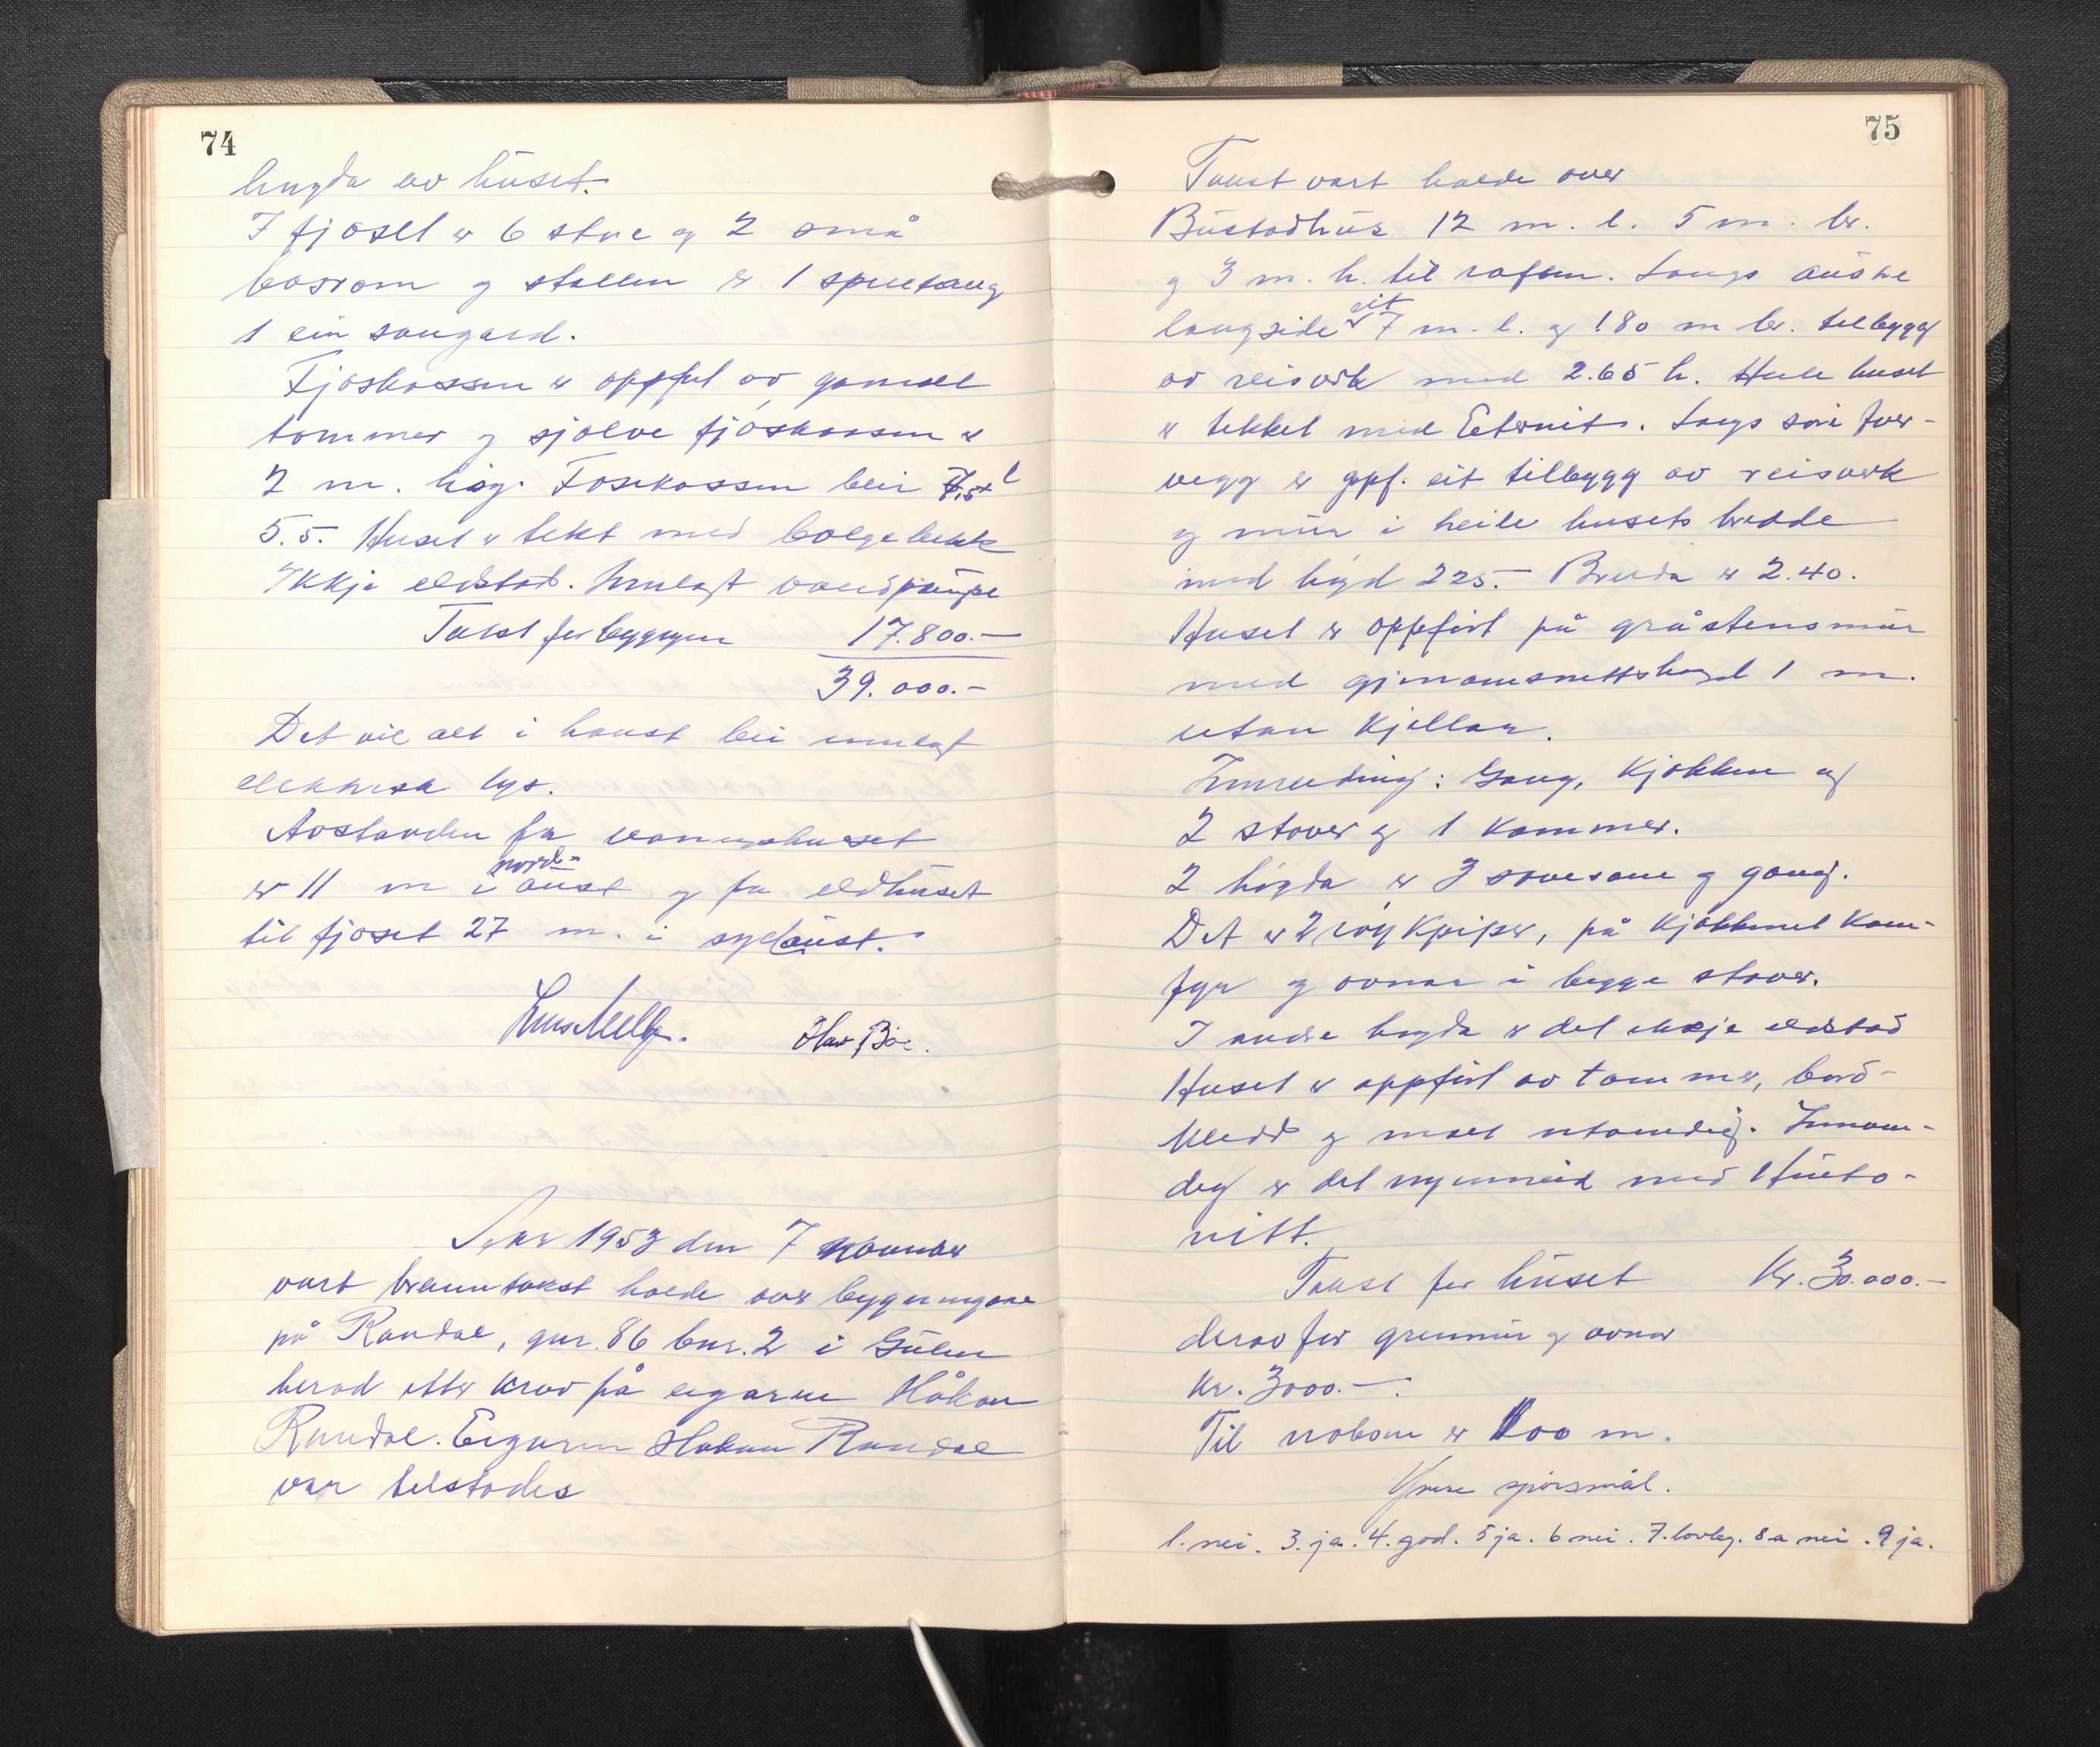 74
høgda av huset.
I fjoset er 6 store og 2 små
båsrom og stallen er 1 spiltaug
1 ein saugard.
Fjøskassen er oppført av gamalt
tømmer og sjølve fjøskassen er
2 m. høg. Fôrkassen blir 7,5 l
5.5. Huset er tekt med bølgeblekk
Ikkje eldstad. Innlagt
Takst for byggingen 17.800.-
39.000.-
Det vil alt i haust bli innlagt
elektrisk lys.
Avstanden fra vaningshuset
er 11 m i nord-aust og fra eldhuset
til fjøset 27 m. i sydaust.
Olav Böe.
År 1953 den 7 november
vart branntakst halde over bygningane
på Randal, gnr. 86 bnr. 2 i Gulen
herad etter krav på eigaren Håkon
Randal. Eigaren Håkon Randal
var tilstades
75
Takst vart halde over
Bustadhus 12 m. l. 5 m. br.
og 3 m. h. til rafsen. Langs austre
langside er eit 7 m. l. og 180 m br. tilbygg
av reisverk med 2.65 h. Heile huset
er tekket med Eternit. Langs søre tver-
vegg er opf. eit tilbygg av reisverk
og mur i heile husets bredde
med høgd 225.- Breida er 2.40.
Huset er oppført på gråstensmur
med gjenomsnittshøgd 1 m.
utan kjellar.
Innreding: Gang, kjøkken og
2 stover og 1 kammer.
2 høgda er 3 soverom og gang.
Det er 2 røykpiper, på kjøkkenet kom-
fyr og ovnar i begge stover.
I andre høgda er det ikkje eldstad
Huset er oppført av tømmer, bord-
kledd og malt utvendig. Innven-
dig er det nyinnreid med Hunto-
nitt.
Takst for huset Kr. 30.000.-
derav for grunnmur og ovnar
kr. 3000.-.
Til nabom er 100 m.
Ymse spørsmål.
1. nei. 3. ja. 4. god. 5 ja. 6 nei. 7. lovleg. 8.a nei. 9 ja.